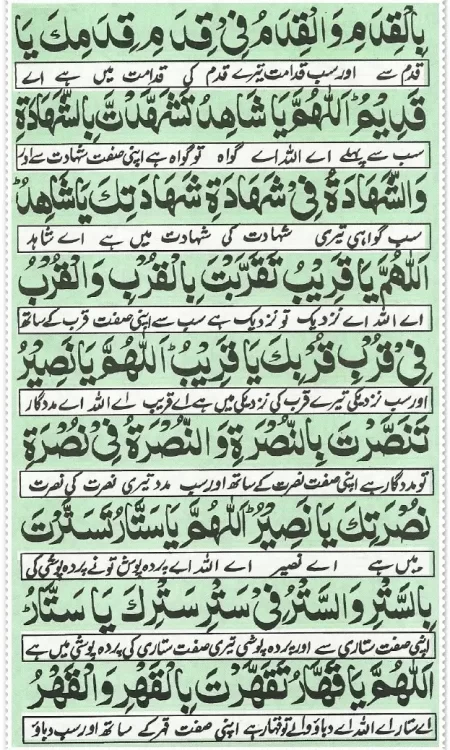 بِالْقِدَمِ وَالْقِدَمُ فِيْ قِدَمِ قِدَمِكَ يَا
قدم سے اور سب قدامت تیرے قدم کی قدامت میں ہے اے
قَدِيْمُ اَللّٰهُمَّ يَا شَاهِدُ تَشَهَّدْتَ بِالشَّهَادَةِ
سب سے پہلے اے اللہ اے گواہ تو گواہ ہے اپنی صفت شہادت سے اور
وَالشَّهَادَةُ فِيْ شَهَادَةِ شَهَادَتِكَ يَا شَاهِدُ
سب گواہی تیری شہادت کی شہادت میں ہے اے شاہد
اَللّٰهُمَّ يَا قَرِيْبُ تَقَرَّبْتَ بِالْقُرْبِ وَالْقُرْبُ
اے اللہ اے نزدیک تو نزدیک ہے سب سے اپنی صفت قرب کے ساتھ
فِيْ قُرْبِ قُرْبِكَ يَا قَرِيْبُ اَللّٰهُمَّ يَا نَصِيْرُ
اور سب نزدیکی تیرے قرب کی نزدیکی میں ہے اے قریب اے اللہ اے مددگار
تَنَصَّرْتَ بِالنُّصْرَةِ وَالنُّصْرَةُ فِيْ نُصْرَةِ
تو مددگار ہے اپنی صفت نصرت کے ساتھ اور سب مدد تیری نصرت کی نصرت
نُصْرَتِكَ يَا نَصِيْرُ اَللّٰهُمَّ يَا سَتَّارُ تَسَتَّرْتَ
میں ہے اے نصیر اے اللہ اے پردہ پوش تو نے پردہ پوشی کی
بِالسَّتْرِ وَالسَّتْرُ فِيْ سَتْرِ سَتْرِكَ يَا سَتَّارُ
اپنی صفت ستاری سے اور پردہ پوشی تیری صفت ستاری کی پردہ پوشی میں ہے
اَللّٰهُمَّ يَا قَهَّارُ تَقَهَّرْتَ بِالْقَهْرِ وَالْقَهْرُ
اے ستار اے اللہ اے دباؤ والے تو قہار ہے اپنی صفت قہر کے ساتھ اور سب دباؤ